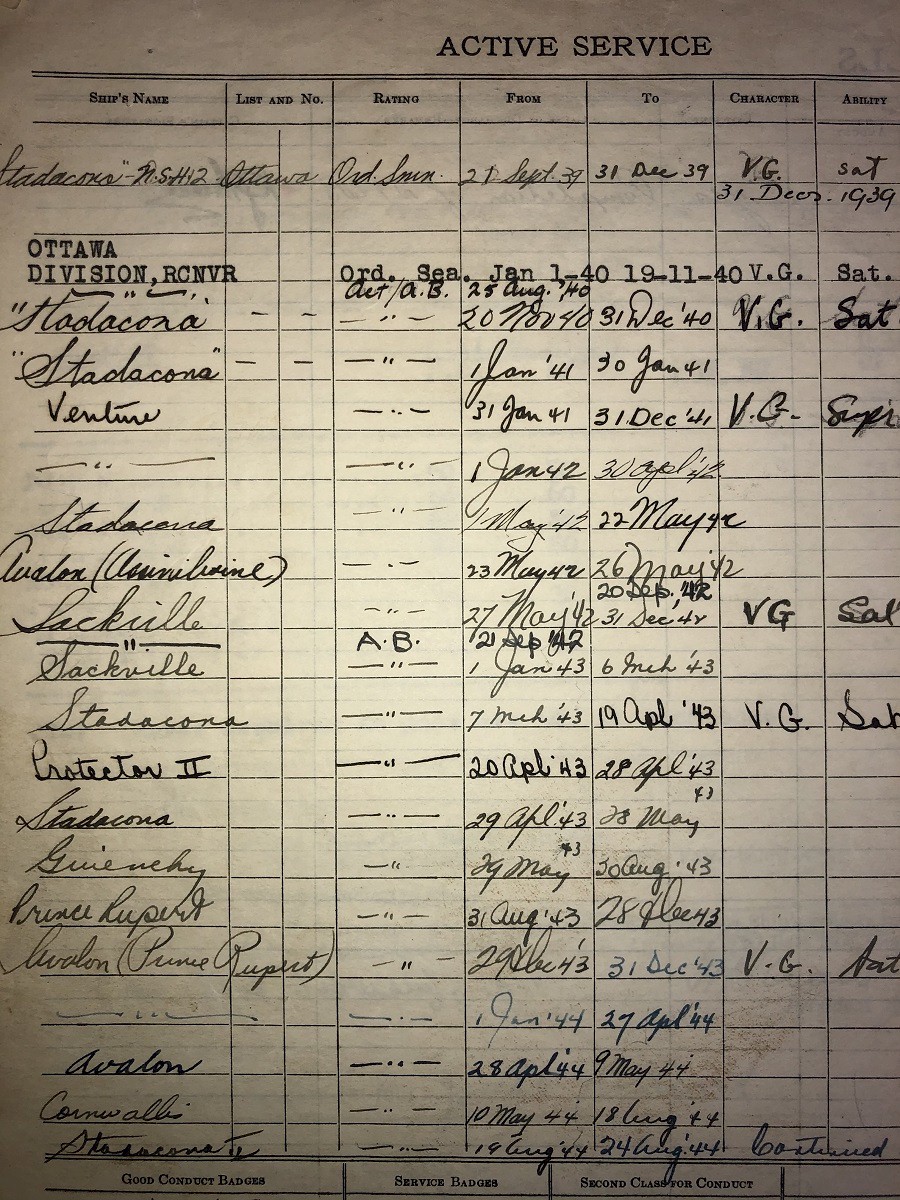 ACTIVE SERVICE
SHIP'S NAME LIST AND NO. RATING FROM TO CHARACTER ABILITY
Stadacona" - N.S.H.12 Ottawa Ord. Smn. 21 Sept. 39 31 Dec 39 V.G. sat
31 Decr. 1939
OTTAWA
DIVISION, RCNVR Ord. Sea. Jan 1-40 19-11-40 V.G. Sat.
Act/A.B. 25 Aug. '40
"Stadacona" — — — " — 20 Nov 40 31 Dec '40 V.G. Sat
"Stadacona" — — — " — 1 Jan '41 30 Jan 41
Venture — " — 31 Jan 41 31 Dec '41 V.G. Supr
— " — — " — 1 Jan 42 30 Apl '42
Stadacona — " — 1 May '42 22 May 42
Avalon (Assiniboine) — " — 23 May 42 26 May '42
20 Sep. '42
Sackville — " — 27 May '42 31 Dec '42 VG Sat
— " — A.B. 21 Sep '42
Sackville — " — 1 Jan 43 6 Mch '43
Stadacona — " — 7 Mch '43 19 Apl '43 V.G. Sat
Protector II — " — 20 Apl '43 28 Apl '43
Stadacona — " — 29 Apl '43 28 May 43
Givenchy — " 29 May 43 30 Aug. '43
Prince Rupert — " — 31 Aug '43 28 Dec 43
Avalon (Prince Rupert) — " — 29 Dec '43 31 Dec '43 V.G. Sat
— " — — " — 1 Jan '44 27 Apl '44
Avalon — " — 28 Apl '44 9 May 44
Cornwallis — " — 10 May 44 18 Aug '44
Stadacona II — " — 19 Aug '44 24 Aug '44 Continued
GOOD CONDUCT BADGES SERVICE BADGES SECOND CLASS FOR CONDUCT